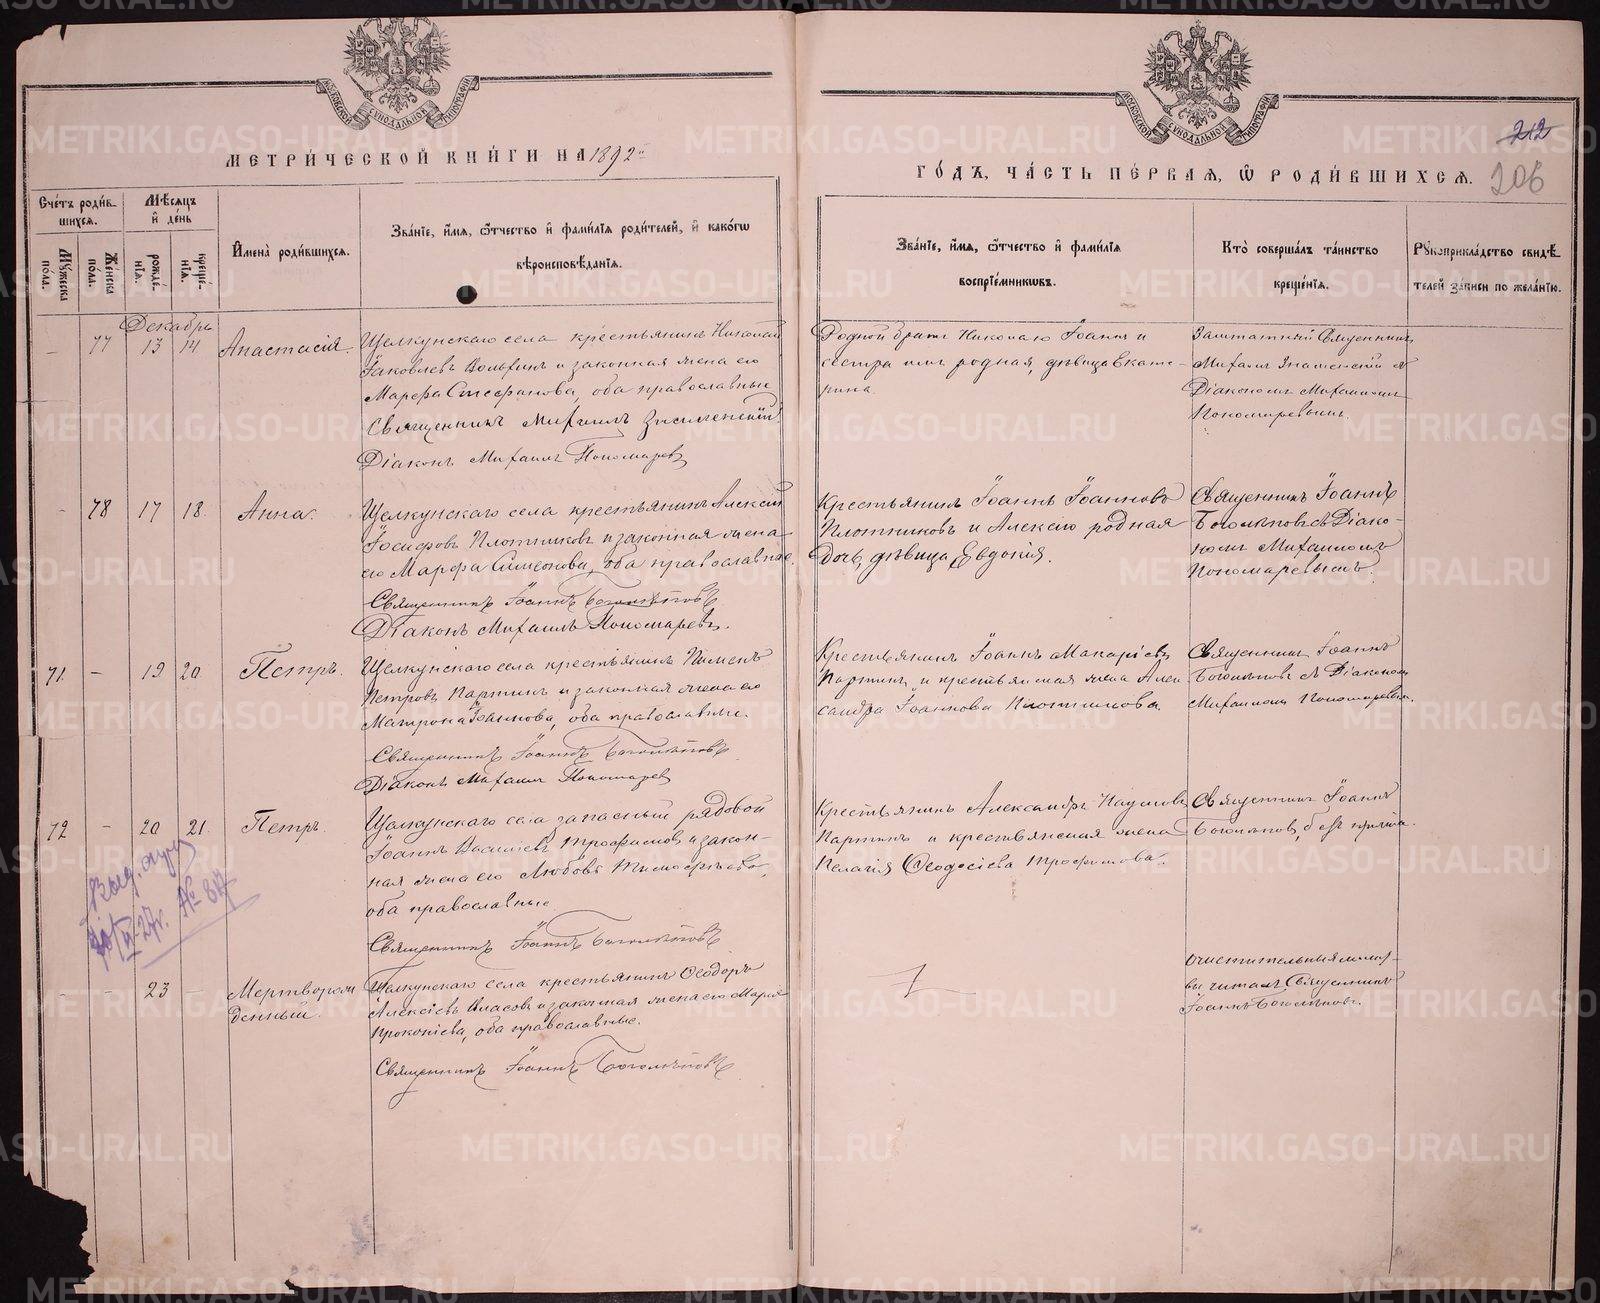 МЕТРИ́ЧЕСКОЙ КНИ́ГИ НА 1892
ГО́ДЪ, ЧА́СТЬ ПЕ́РВАЯ, Ѡ РОДИ́ВШИХСЯ.
212
206
МОСКОВСКОЙ СѴНОДАЛЬНОЙ ТИПОГРАФІИ
МОСКОВСКОЙ СѴНОДАЛЬНОЙ ТИПОГРАФІИ
Сче́тъ роди́в-
шихся.
Мꙋ́жеска по́ла.
Же́нска по́ла.
Мѣ́сяцъ
и҆ де́нь
рожде́нїя.
креще́нїя.
И҆мена̀ роди́вшихся.
Зва́нїе, и҆́мя, ѻ҆́тчество и҆ фами́лїя роди́телей, и҆ како́гѡ
вѣроисповѣ́данїя.
Зва́нїе, и҆́мя, ѻ҆́тчество и҆ фами́лїя
воспрїе́мникѡвъ.
Кто̀ соверша́лъ та́инство
креще́нїя.
Рꙋкоприкла́дство свидѣ́-
телей за́писи по жела́нїю.
Декабрь
- 77 13 14 Анастасія.
Щелкунскаго села крестьянинъ Николай
Іаковлевъ и законная жена его
Марфа Стефанова, оба православные
Священникъ Михаилъ Знаменскій
Діаконъ Михаилъ Пономаревъ
Родной братъ Николаю Іоаннъ и
сестра имъ родная, дѣвица Екате-
рина.
Заштатный Священникъ
Михаилъ Знаменскій съ
Діакономъ Михаиломъ
Пономаревымъ.
- 78 17 18. Анна.
Щелкунскаго села крестьянинъ Алексій
Іосифовъ Плотниковъ и законная жена
его Марфа Симеонова, оба православные.
Священникъ Іоаннъ Боголѣповъ
Діаконъ Михаилъ Пономаревъ.
Крестьянинъ Іоаннъ Іоанновъ
Плотниковъ и Алексію родная
дочь, дѣвица Евдокія.
Священникъ Іоаннъ
Боголѣповъ съ Діако-
номъ Михаиломъ
Пономаревымъ.
71. - 19 20 Петръ.
Щелкунскаго села крестьянинъ Пименъ
Петровъ Паршинъ и законная жена его
Матрона Іоаннова, оба православные.
Священникъ Іоаннъ Боголѣповъ
Діаконъ Михаилъ Пономаревъ
Крестьянинъ Іоаннъ Макаріевъ
Паршинъ и крестьянская жена Алек
сандра Іоаннова Плотникова.
Священникъ Іоаннъ
Боголѣповъ съ Діакономъ
Михаиломъ Пономаревымъ.
72 - 20 21 Петръ.
Щелкунскаго села запасный рядовой
Іоаннъ Василіевъ Трофимовъ и закон-
ная жена его Любовь Тимофѣева,
оба православные
Священникъ Іоаннъ Боголѣповъ
Крестьянинъ Александръ Наумовъ
Паршинъ и крестьянская жена
Пелагія Ѳеодосіева Трофимова.
Священникъ Іоаннъ
Боголѣповъ, безъ причта.
27г. № 817
- - 23 - Мертворож
денный.
Щелкунскаго села крестьянинъ Ѳеодоръ
Алексіевъ Власовъ и законная жена его Марія
Прокопіева, оба православные.
Священникъ Іоаннъ Боголѣповъ
Очистительныя молит-
вы читалъ Священникъ
Іоаннъ Боголѣповъ.
METRIKI.GASO-URAL.RU